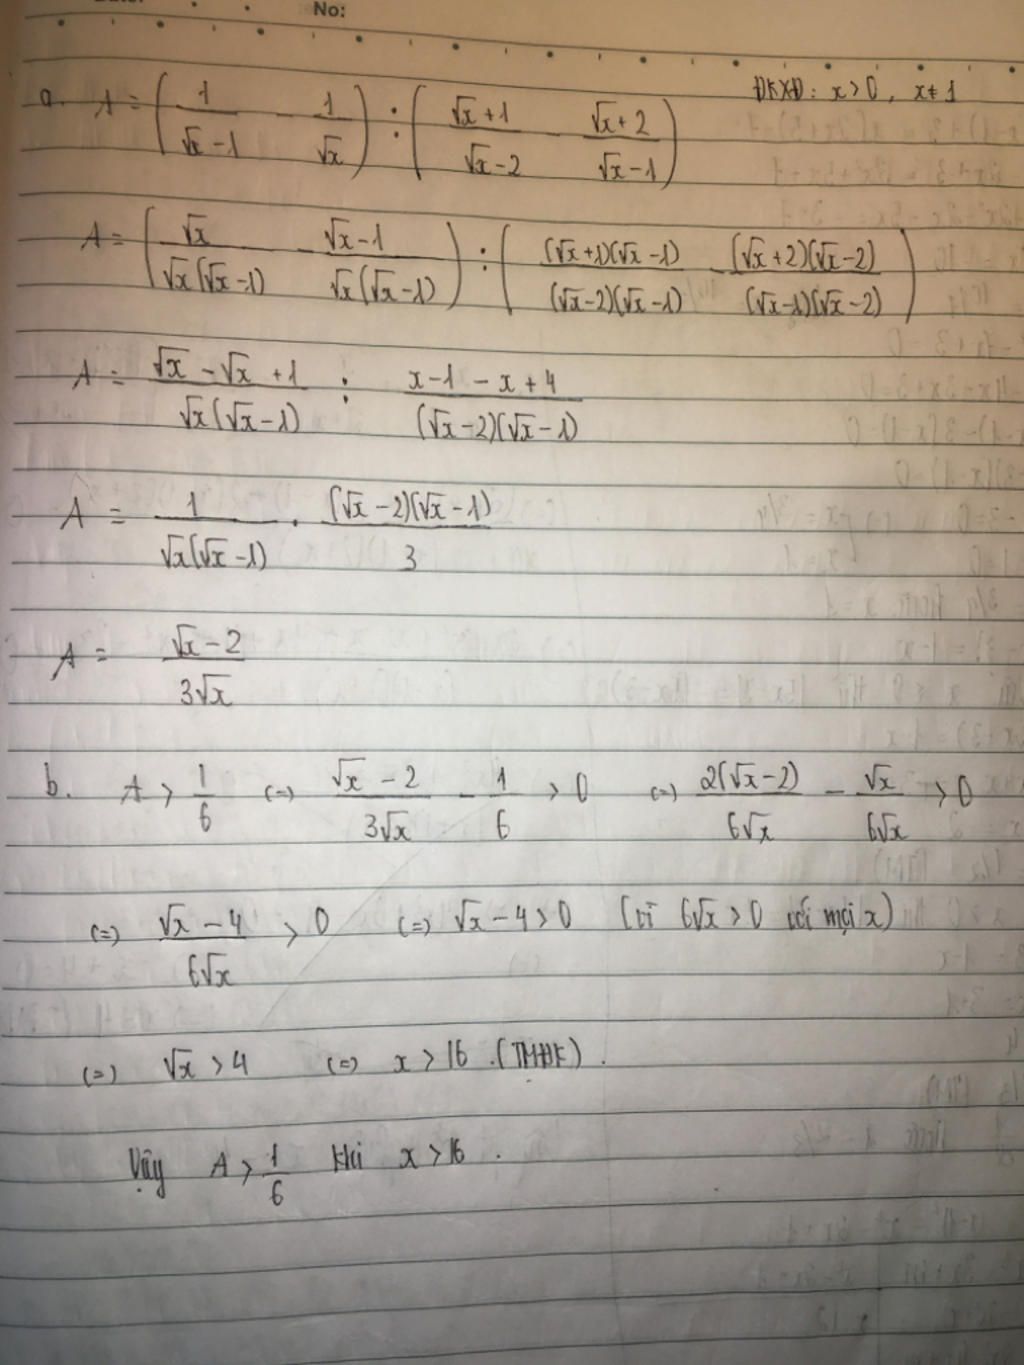 No:
ĐKXĐ: x > 0, x ≠ 1
a. A = (1/(√x - 1) - 1/√x) : ((√x + 1)/(√x - 2) - (√x + 2)/(√x - 1))
A = (√x/(√x(√x - 1)) - (√x - 1)/(√x(√x - 1))) : ((√x + 1)(√x - 1)/((√x - 2)(√x - 1)) - (√x + 2)(√x - 2)/((√x - 1)(√x - 2)))
A = (√x - √x + 1)/(√x(√x - 1)) : (x - 1 - x + 4)/((√x - 2)(√x - 1))
A = 1/(√x(√x - 1)) . (√x - 2)(√x - 1)/3
A = (√x - 2)/(3√x)
b. A > 1/6 (=) (√x - 2)/(3√x) - 1/6 > 0 (=) 2(√x - 2)/(6√x) - √x/(6√x) > 0
(=) (√x - 4)/(6√x) > 0 (=) √x - 4 > 0 (vì 6√x > 0 với mọi x)
(=) √x > 4 (=) x > 16 . (TMĐK) .
Vậy A > 1/6 khi x > 16 .